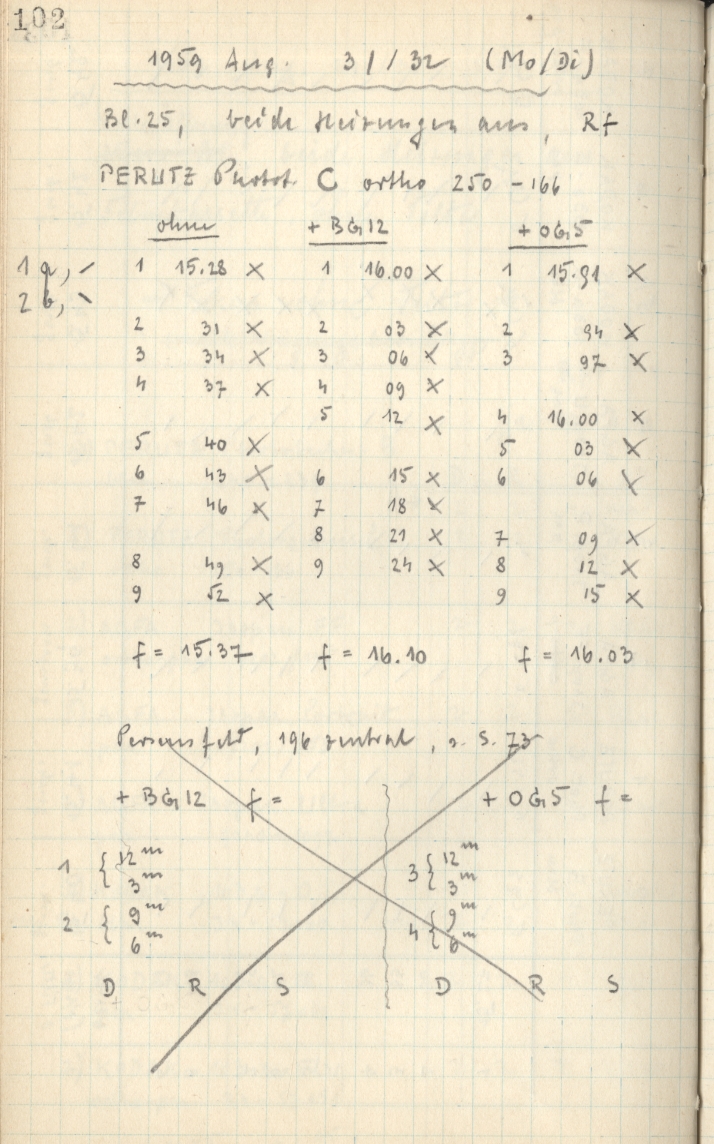 102
1959 Aug. 31/32 (Mo/Di)
Bl. 25, beide Heizungen aus, Rf
PERUTZ Photot. C ortho 250 - 166
ohne + BG12 + OG5
1 a, / 1 15.28 X 1 16.00 X 1 15.91 X
2 b, \
2 31 X 2 03 X 2 94 X
3 34 X 3 06 X 3 97 X
4 37 X 4 09 X
5 12 X 4 16.00 X
5 40 X 5 03 X
6 43 X 6 15 X 6 06 X
7 46 X 7 18 X
8 21 X 7 09 X
8 49 X 9 24 X 8 12 X
9 52 X 9 15 X
f = 15.37 f = 16.10 f = 16.03
Perseusfeld, 196 zentral, s. S. 73
+ BG12 f = + OG5 f =
1 { 12m 3 { 12m
3m 3m
2 { 9m 4 { 9m
6m 6m
D R S D R S